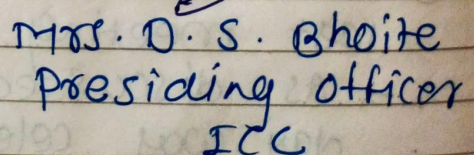 Mrs. D. S. Bhoite
Presiding Officer
ICC